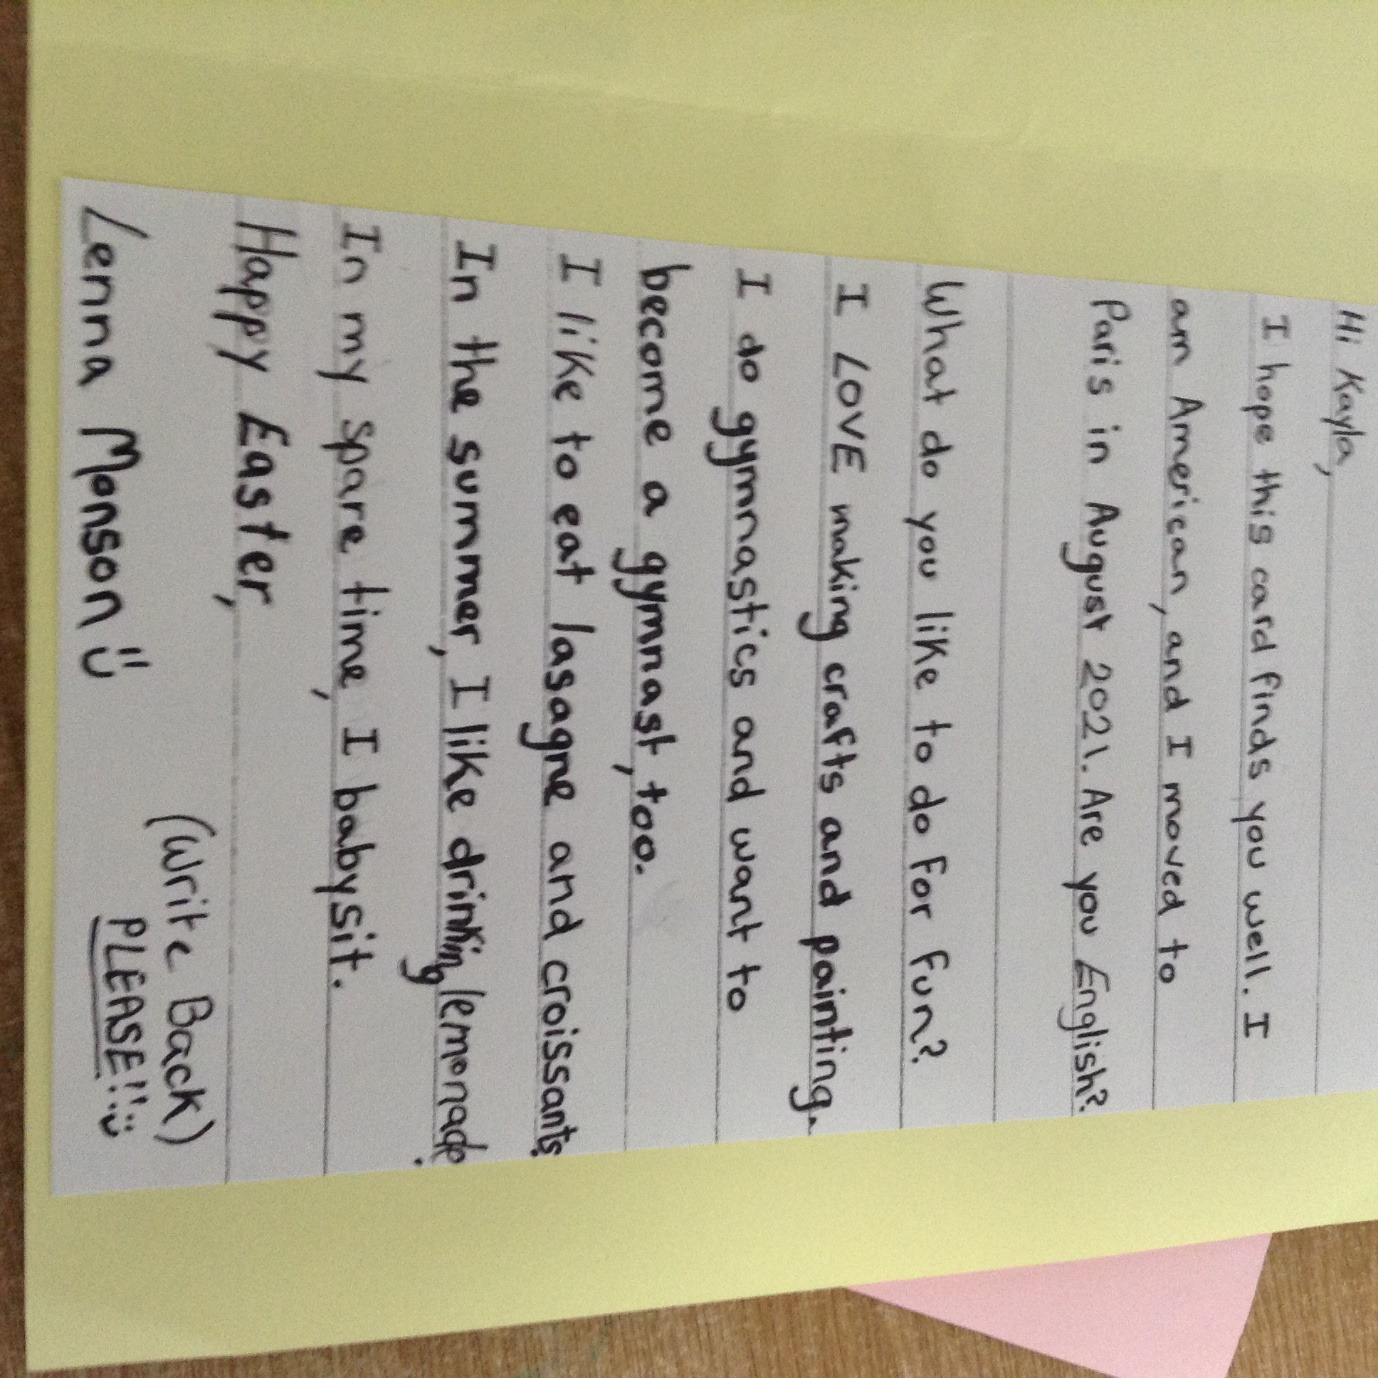 Hi Kayla,
I hope this card finds you well. I
am American, and I moved to
Paris in August 2021. Are you English?
What do you like to do for fun?
I LOVE making crafts and painting.
I do gymnastics and want to
become a gymnast, too.
I like to eat lasagne and croissants.
In the summer, I like drinking lemonade.
In my spare time, I babysit.
Happy Easter,
Lenna Monson
(Write Back)
PLEASE!!